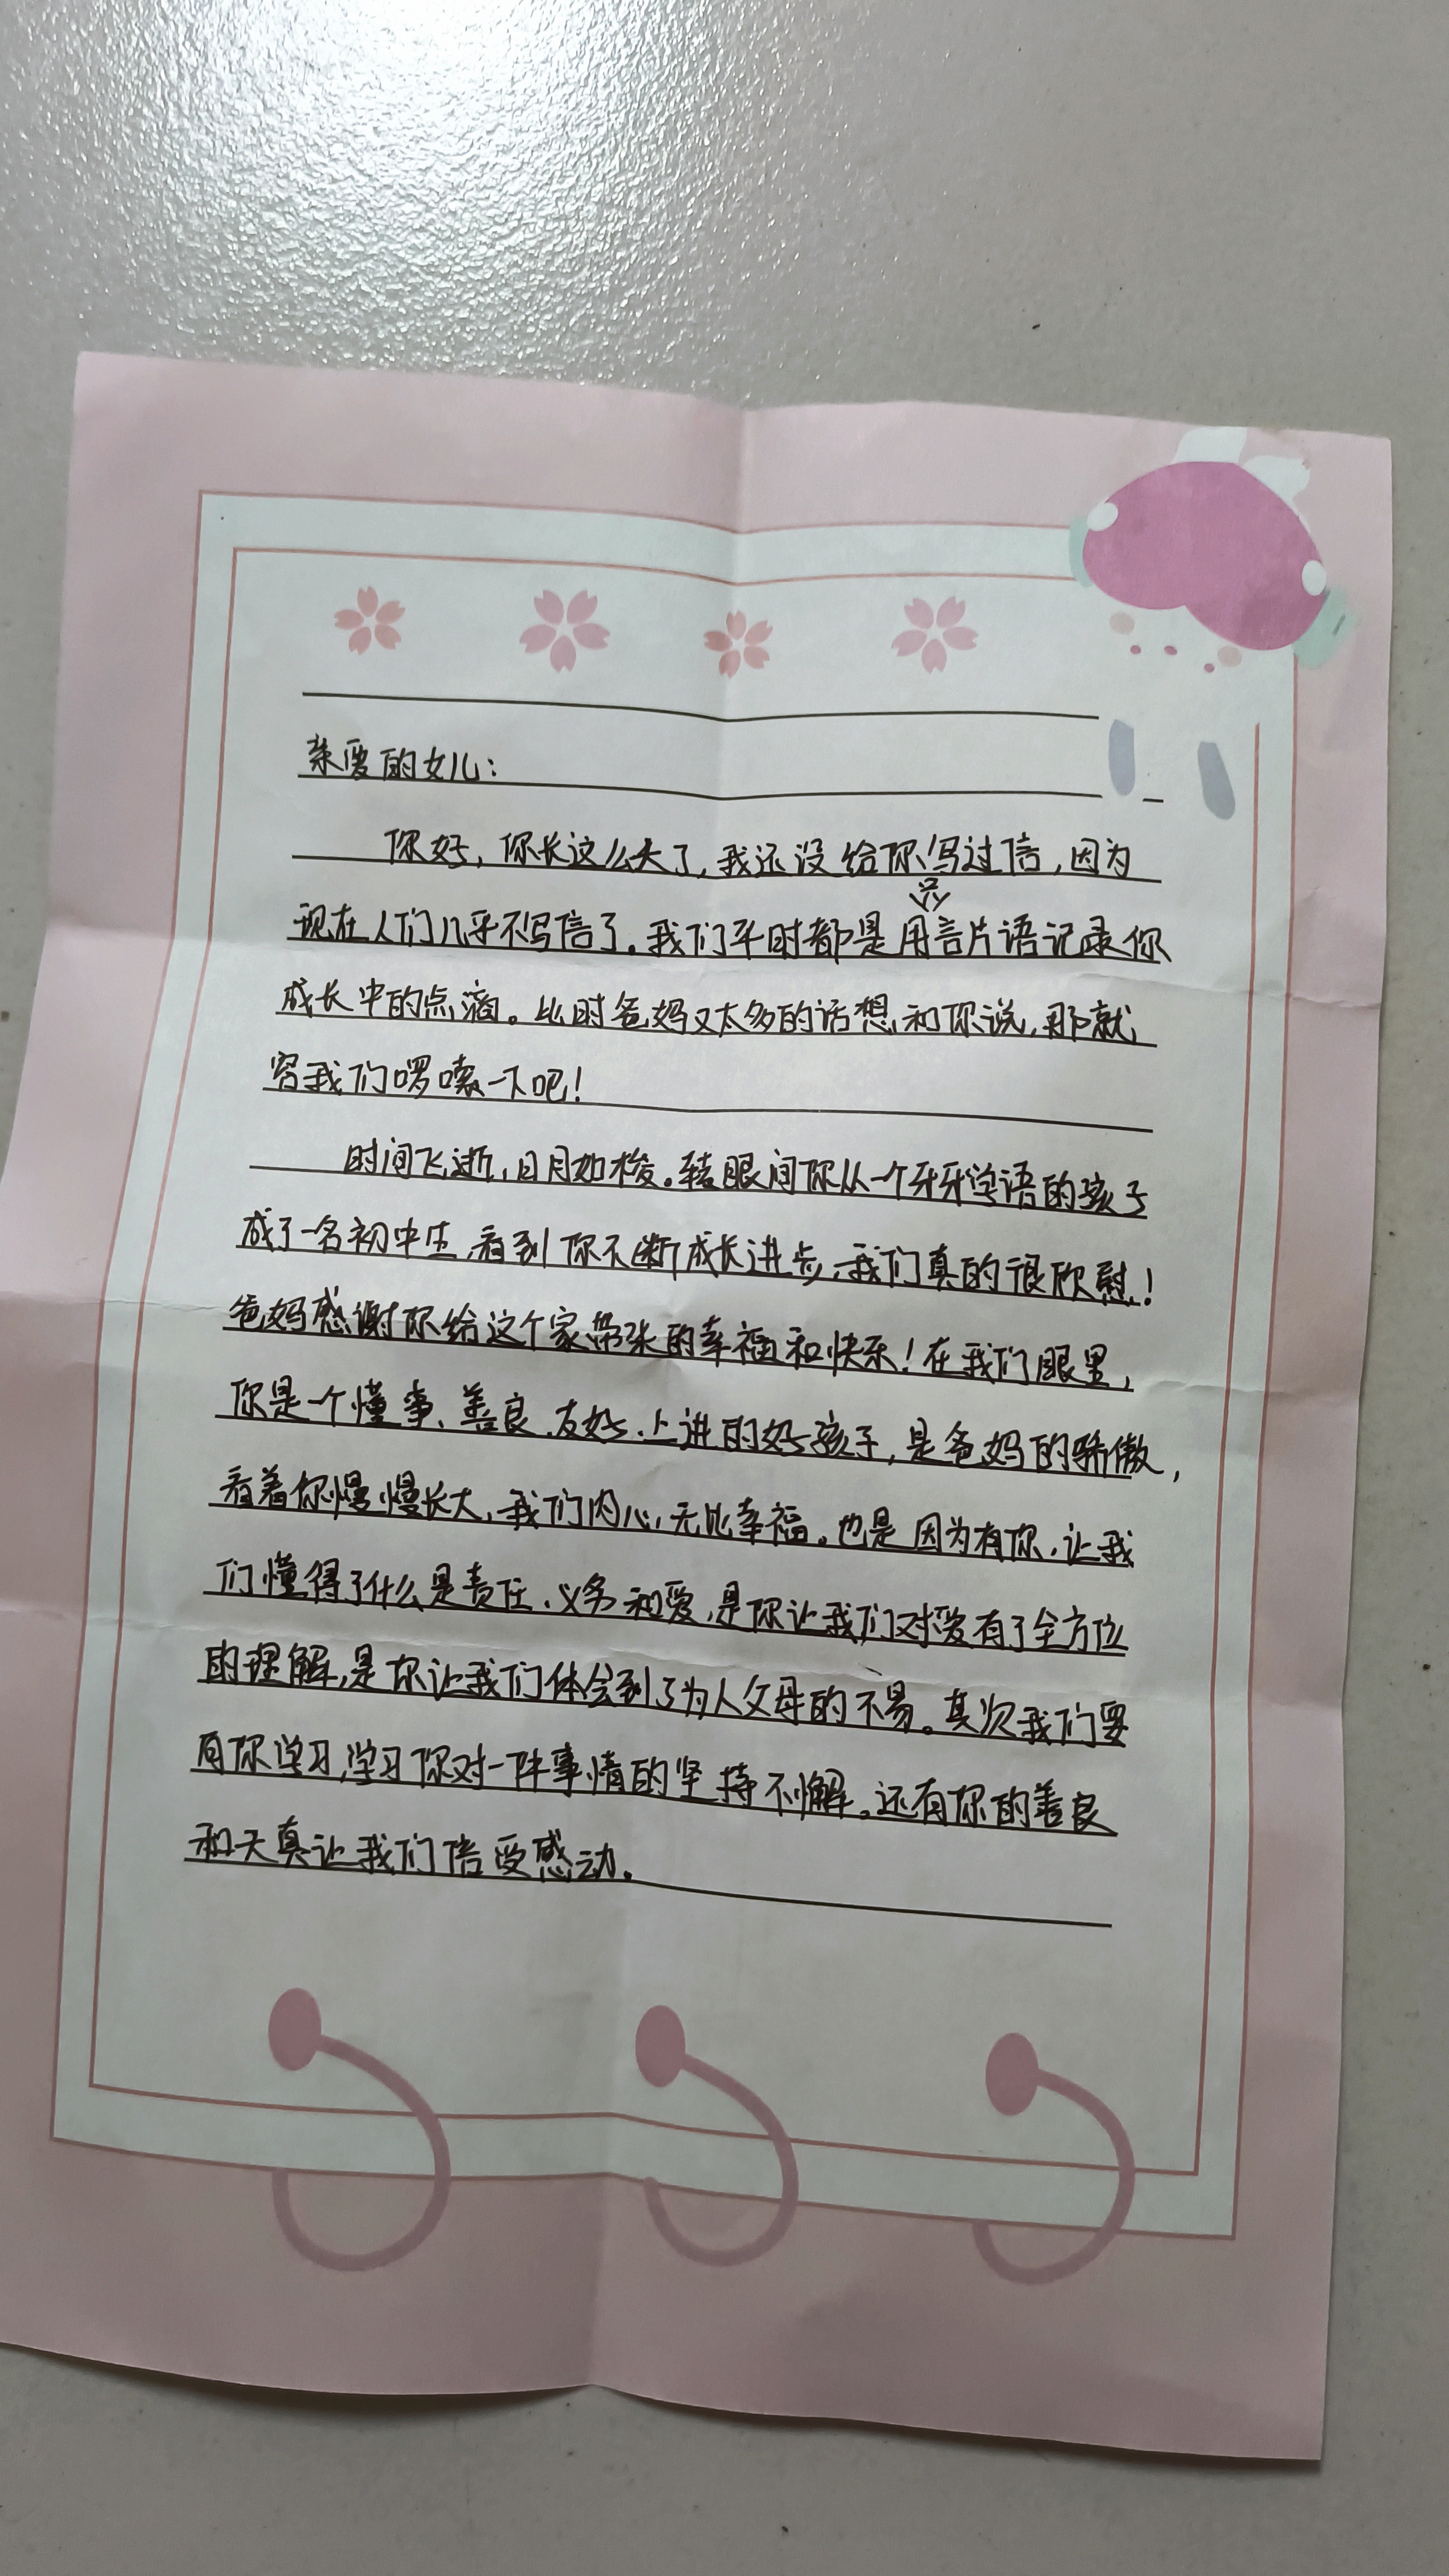 亲爱的女儿：
你好，你长这么大了，我还没给你写过信，因为
现在人们几乎不写信了。我们平时都是用只言片语记录你
成长中的点滴。此时爸妈又太多的话想和你说，那就
容我们啰嗦一下吧！
时间飞逝，日月如梭。转眼间你从一个牙牙学语的孩子
成了一名初中生，看到你不断成长进步，我们真的很欣慰！
爸妈感谢你给这个家带来的幸福和快乐！在我们眼里，
你是一个懂事、善良、友好、上进的好孩子，是爸妈的骄傲，
看着你慢慢长大，我们内心无比幸福。也是因为有你，让我
们懂得了什么是责任、义务和爱，是你让我们对爱有了全方位
的理解，是你让我们体会到了为人父母的不易。其次我们要
向你学习，学习你对一件事情的坚持不懈。还有你的善良
和天真让我们倍受感动。